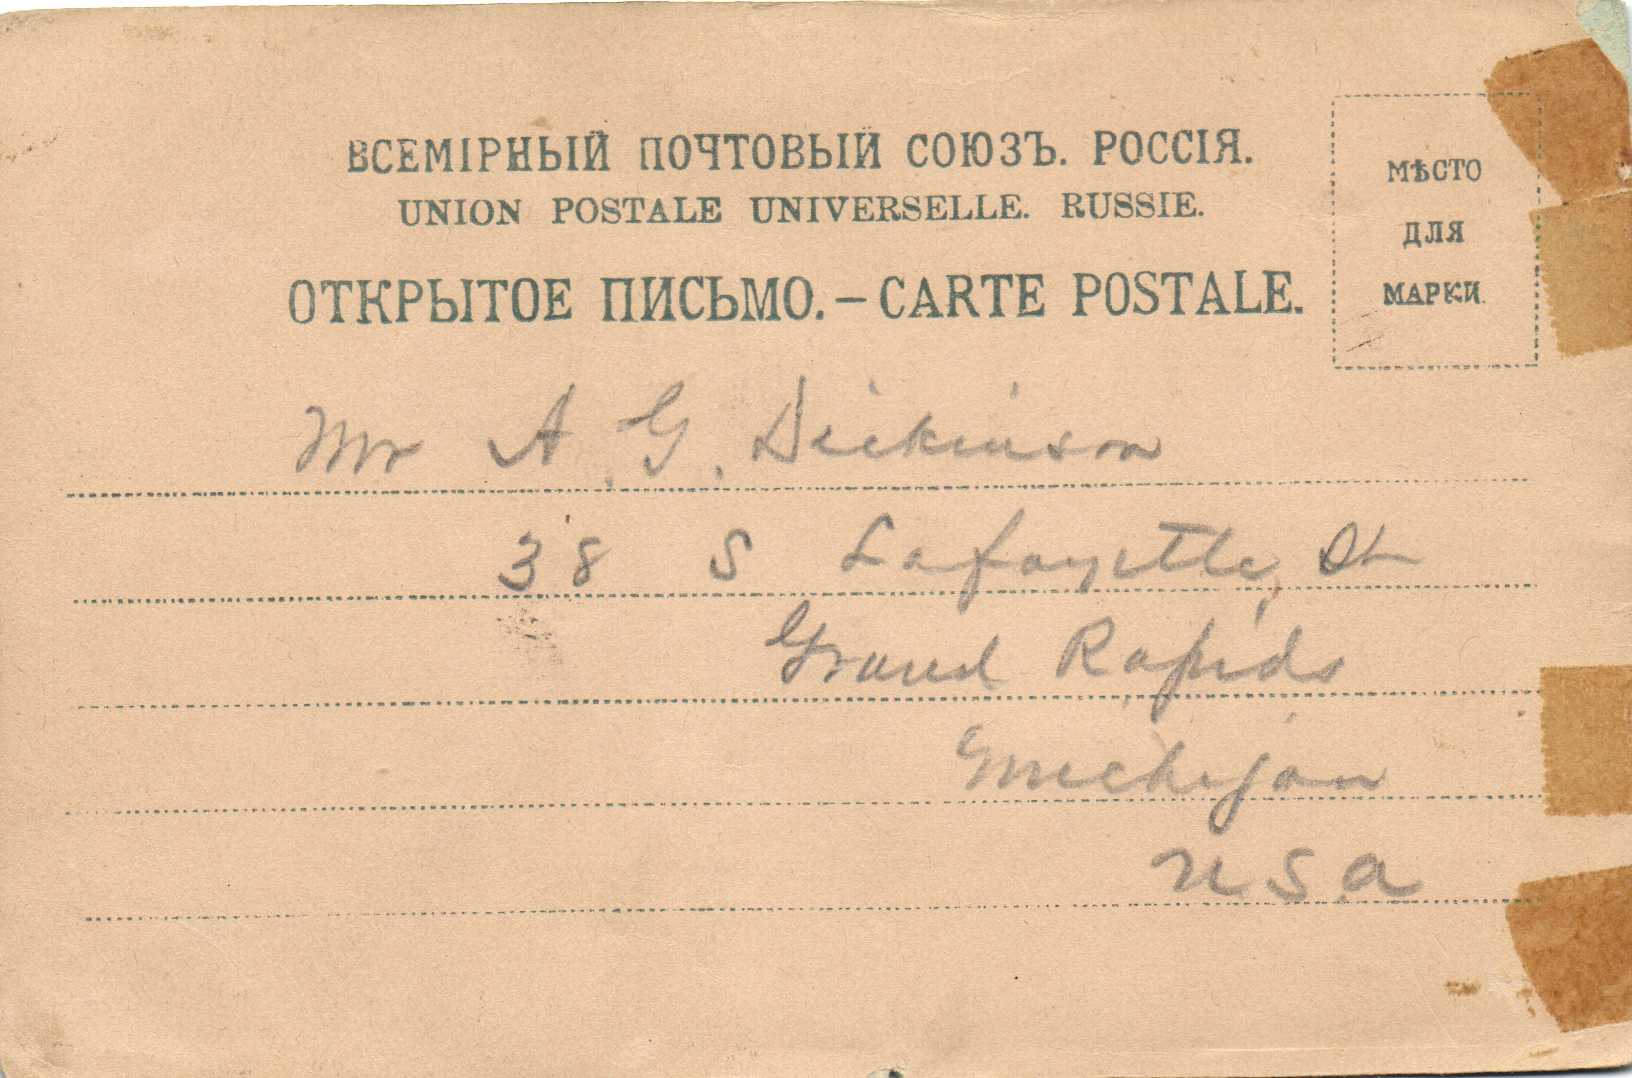 ВСЕМІРНЫЙ ПОЧТОВЫЙ СОЮЗЪ. РОССІЯ.
UNION POSTALE UNIVERSELLE. RUSSIE.
ОТКРЫТОЕ ПИСЬМО.–CARTE POSTALE.
МѢСТО
ДЛЯ
МАРКИ.
Mr A. G. Dickinson
38 S Lafayette, St
Grand Rapids
Michigan
U.S.A